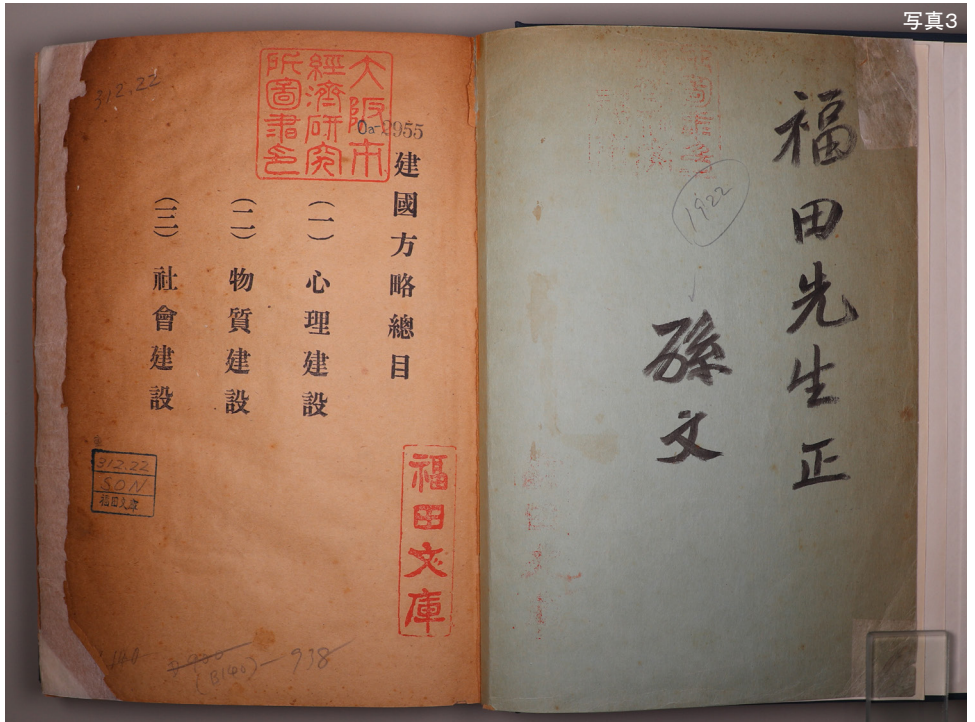 写真3
福田先生正
孫文
1922
大阪市
經濟研究
所圖書印
Oa-2955
312.22
建國方略總目
(一)心理建設
(二)物質建設
(三)社會建設
福田文庫
312.22
SON
福田文庫
938